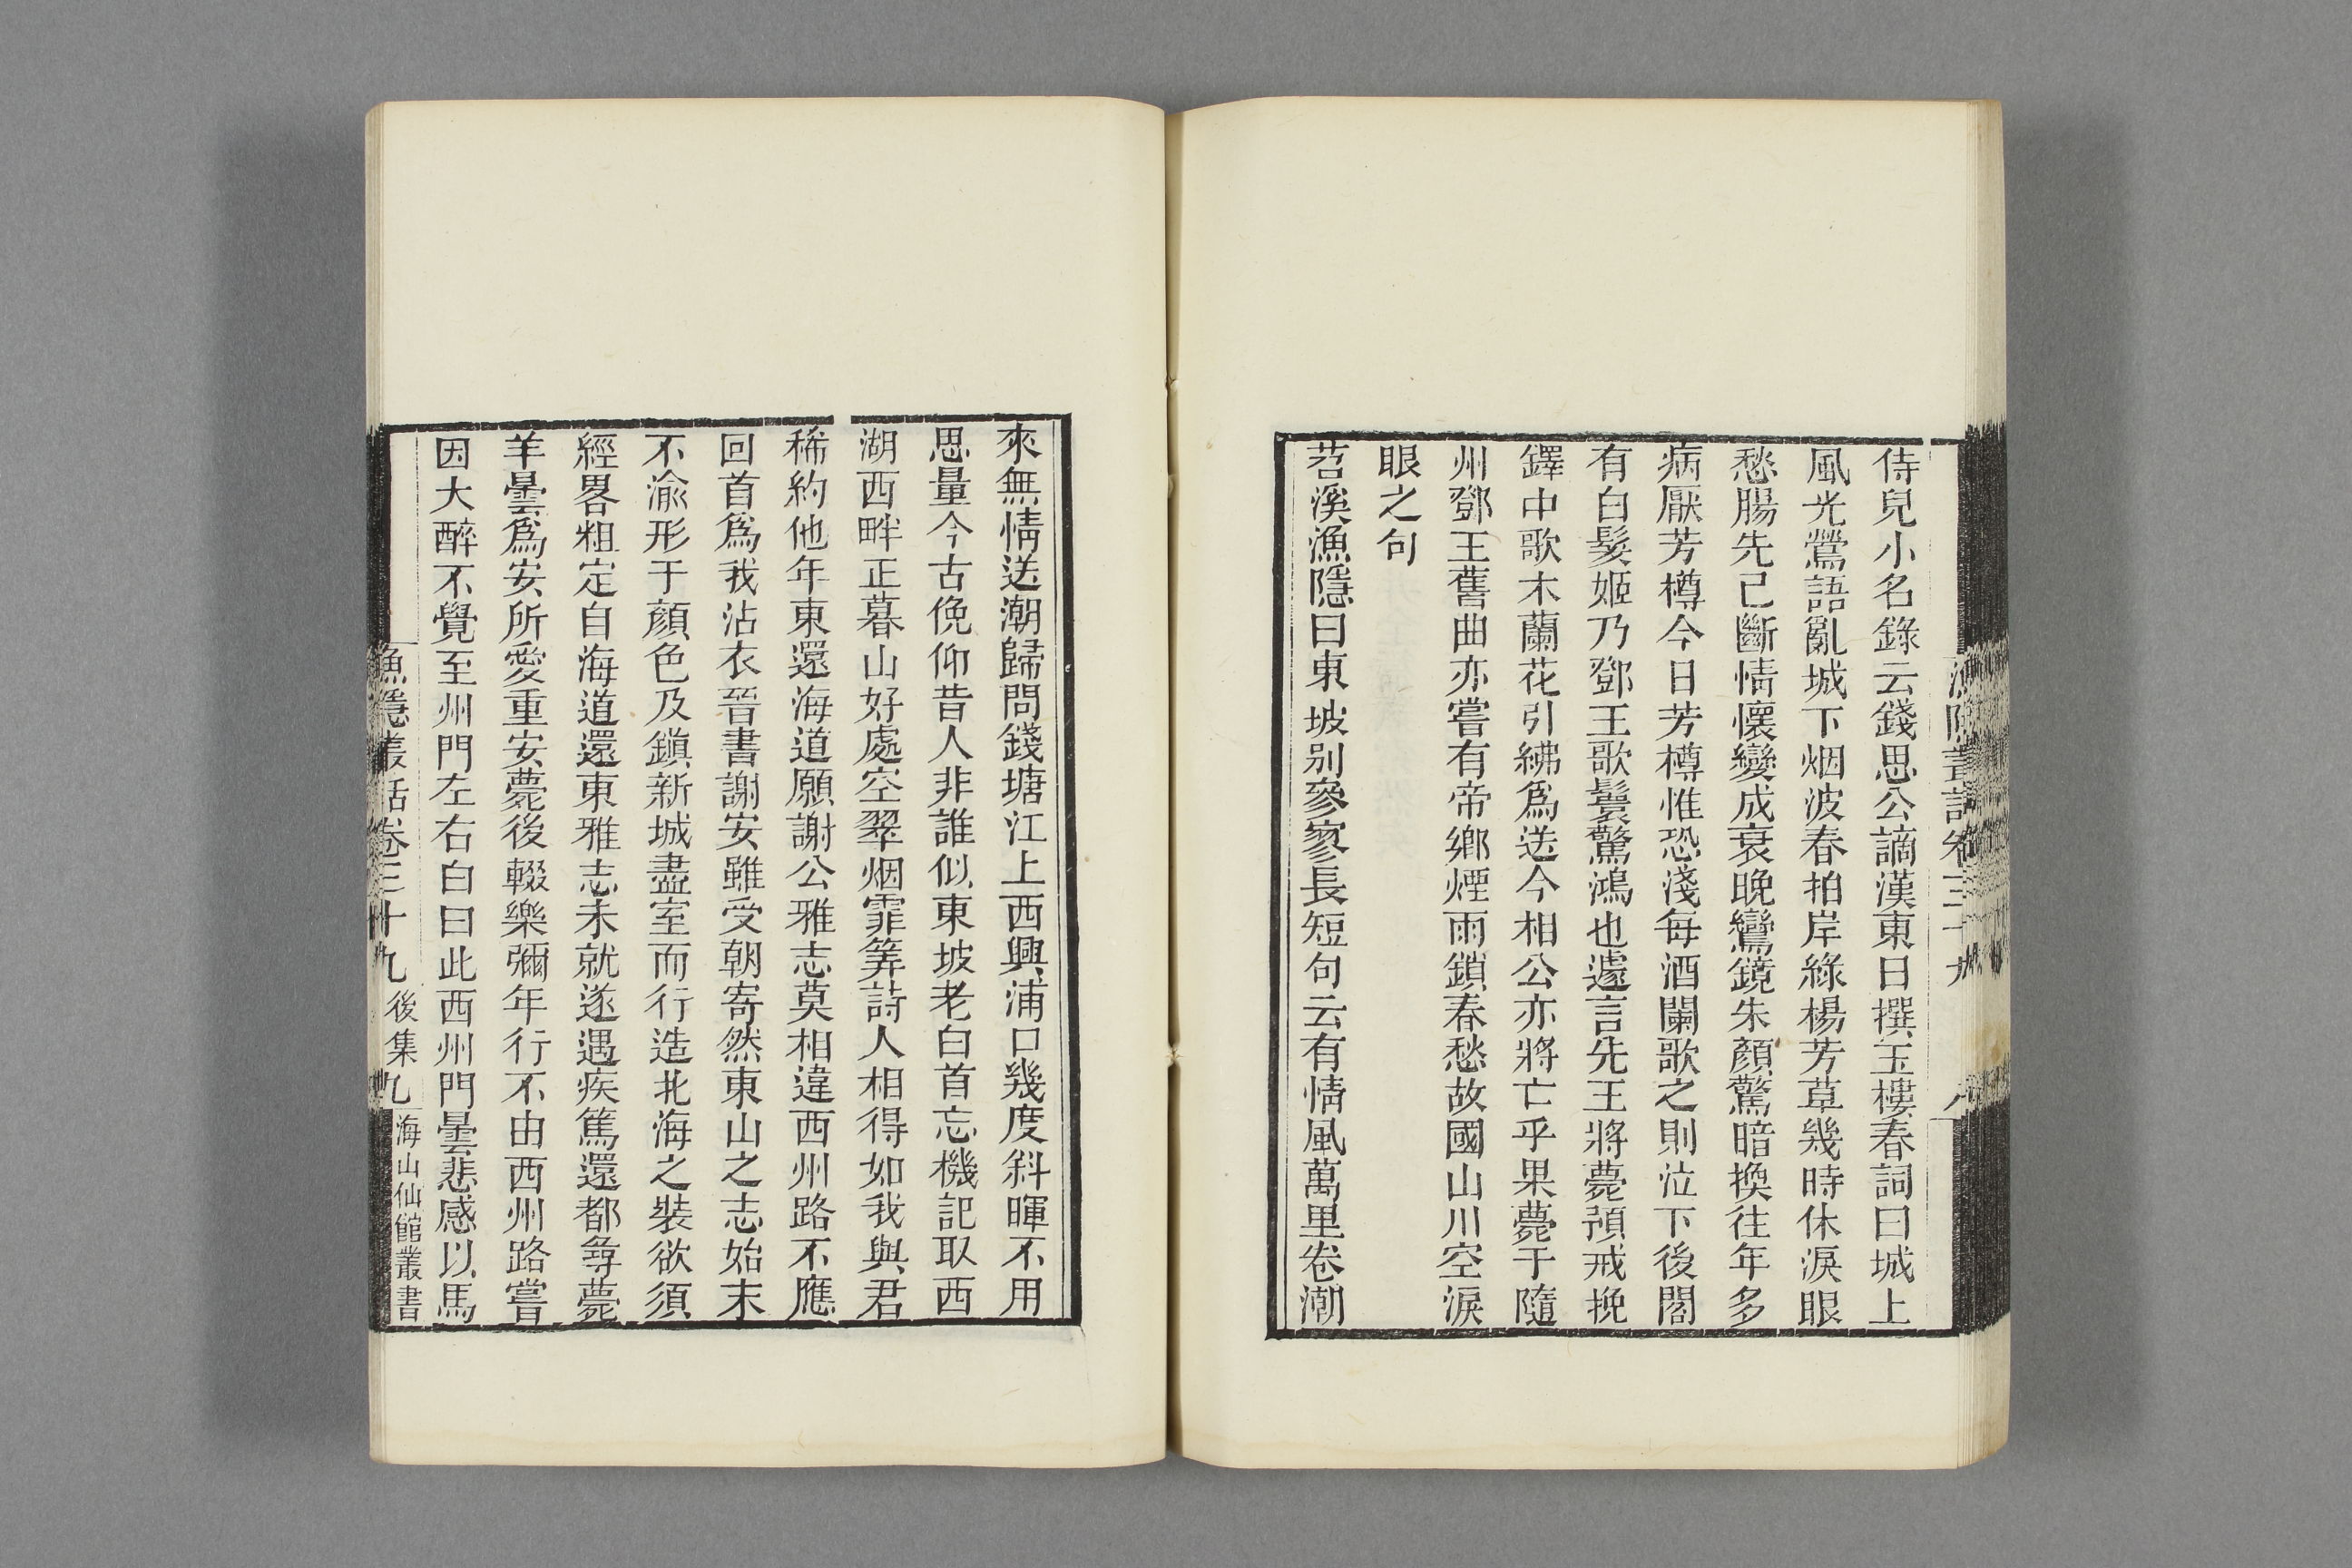 侍兒小名錄云錢思公謫漢東日撰玉樓春詞曰城上
風光鶯語亂城下烟波春拍岸綠楊芳草幾時休淚眼
愁腸先已斷情懷變成衰晚鸞鏡朱顏驚暗換往年多
病厭芳樽今日芳樽惟恐淺每酒闌歌之則泣下後閣
有白髮姬乃鄧王歌鬟驚鴻也遽言先王將薨預戒挽
鐸中歌木蘭花引紼爲送今相公亦將亡乎果薨于隨
州鄧王舊曲亦嘗有帝鄉煙雨鎖春愁故國山川空淚
眼之句
苕溪漁隱曰東坡別參寥長短句云有情風萬里卷潮
來無情送潮歸問錢塘江上西興浦口幾度斜暉不用
思量今古俛仰昔人非誰似東坡老白首忘機記取西
湖西畔正暮山好處空翠烟霏筭詩人相得如我與君
稀約他年東還海道願謝公雅志莫相違西州路不應
回首爲我沾衣晉書謝安雖受朝寄然東山之志始末
不渝形于顏色及鎮新城盡室而行造北海之裝欲須
經畧粗定自海道還東雅志未就遂遇疾篤還都尋薨
羊曇爲安所愛重安薨後輟樂彌年行不由西州路嘗
因大醉不覺至州門左右白曰此西州門曇悲感以馬
漁隱叢話卷三十九 後集 九 海山仙館叢書